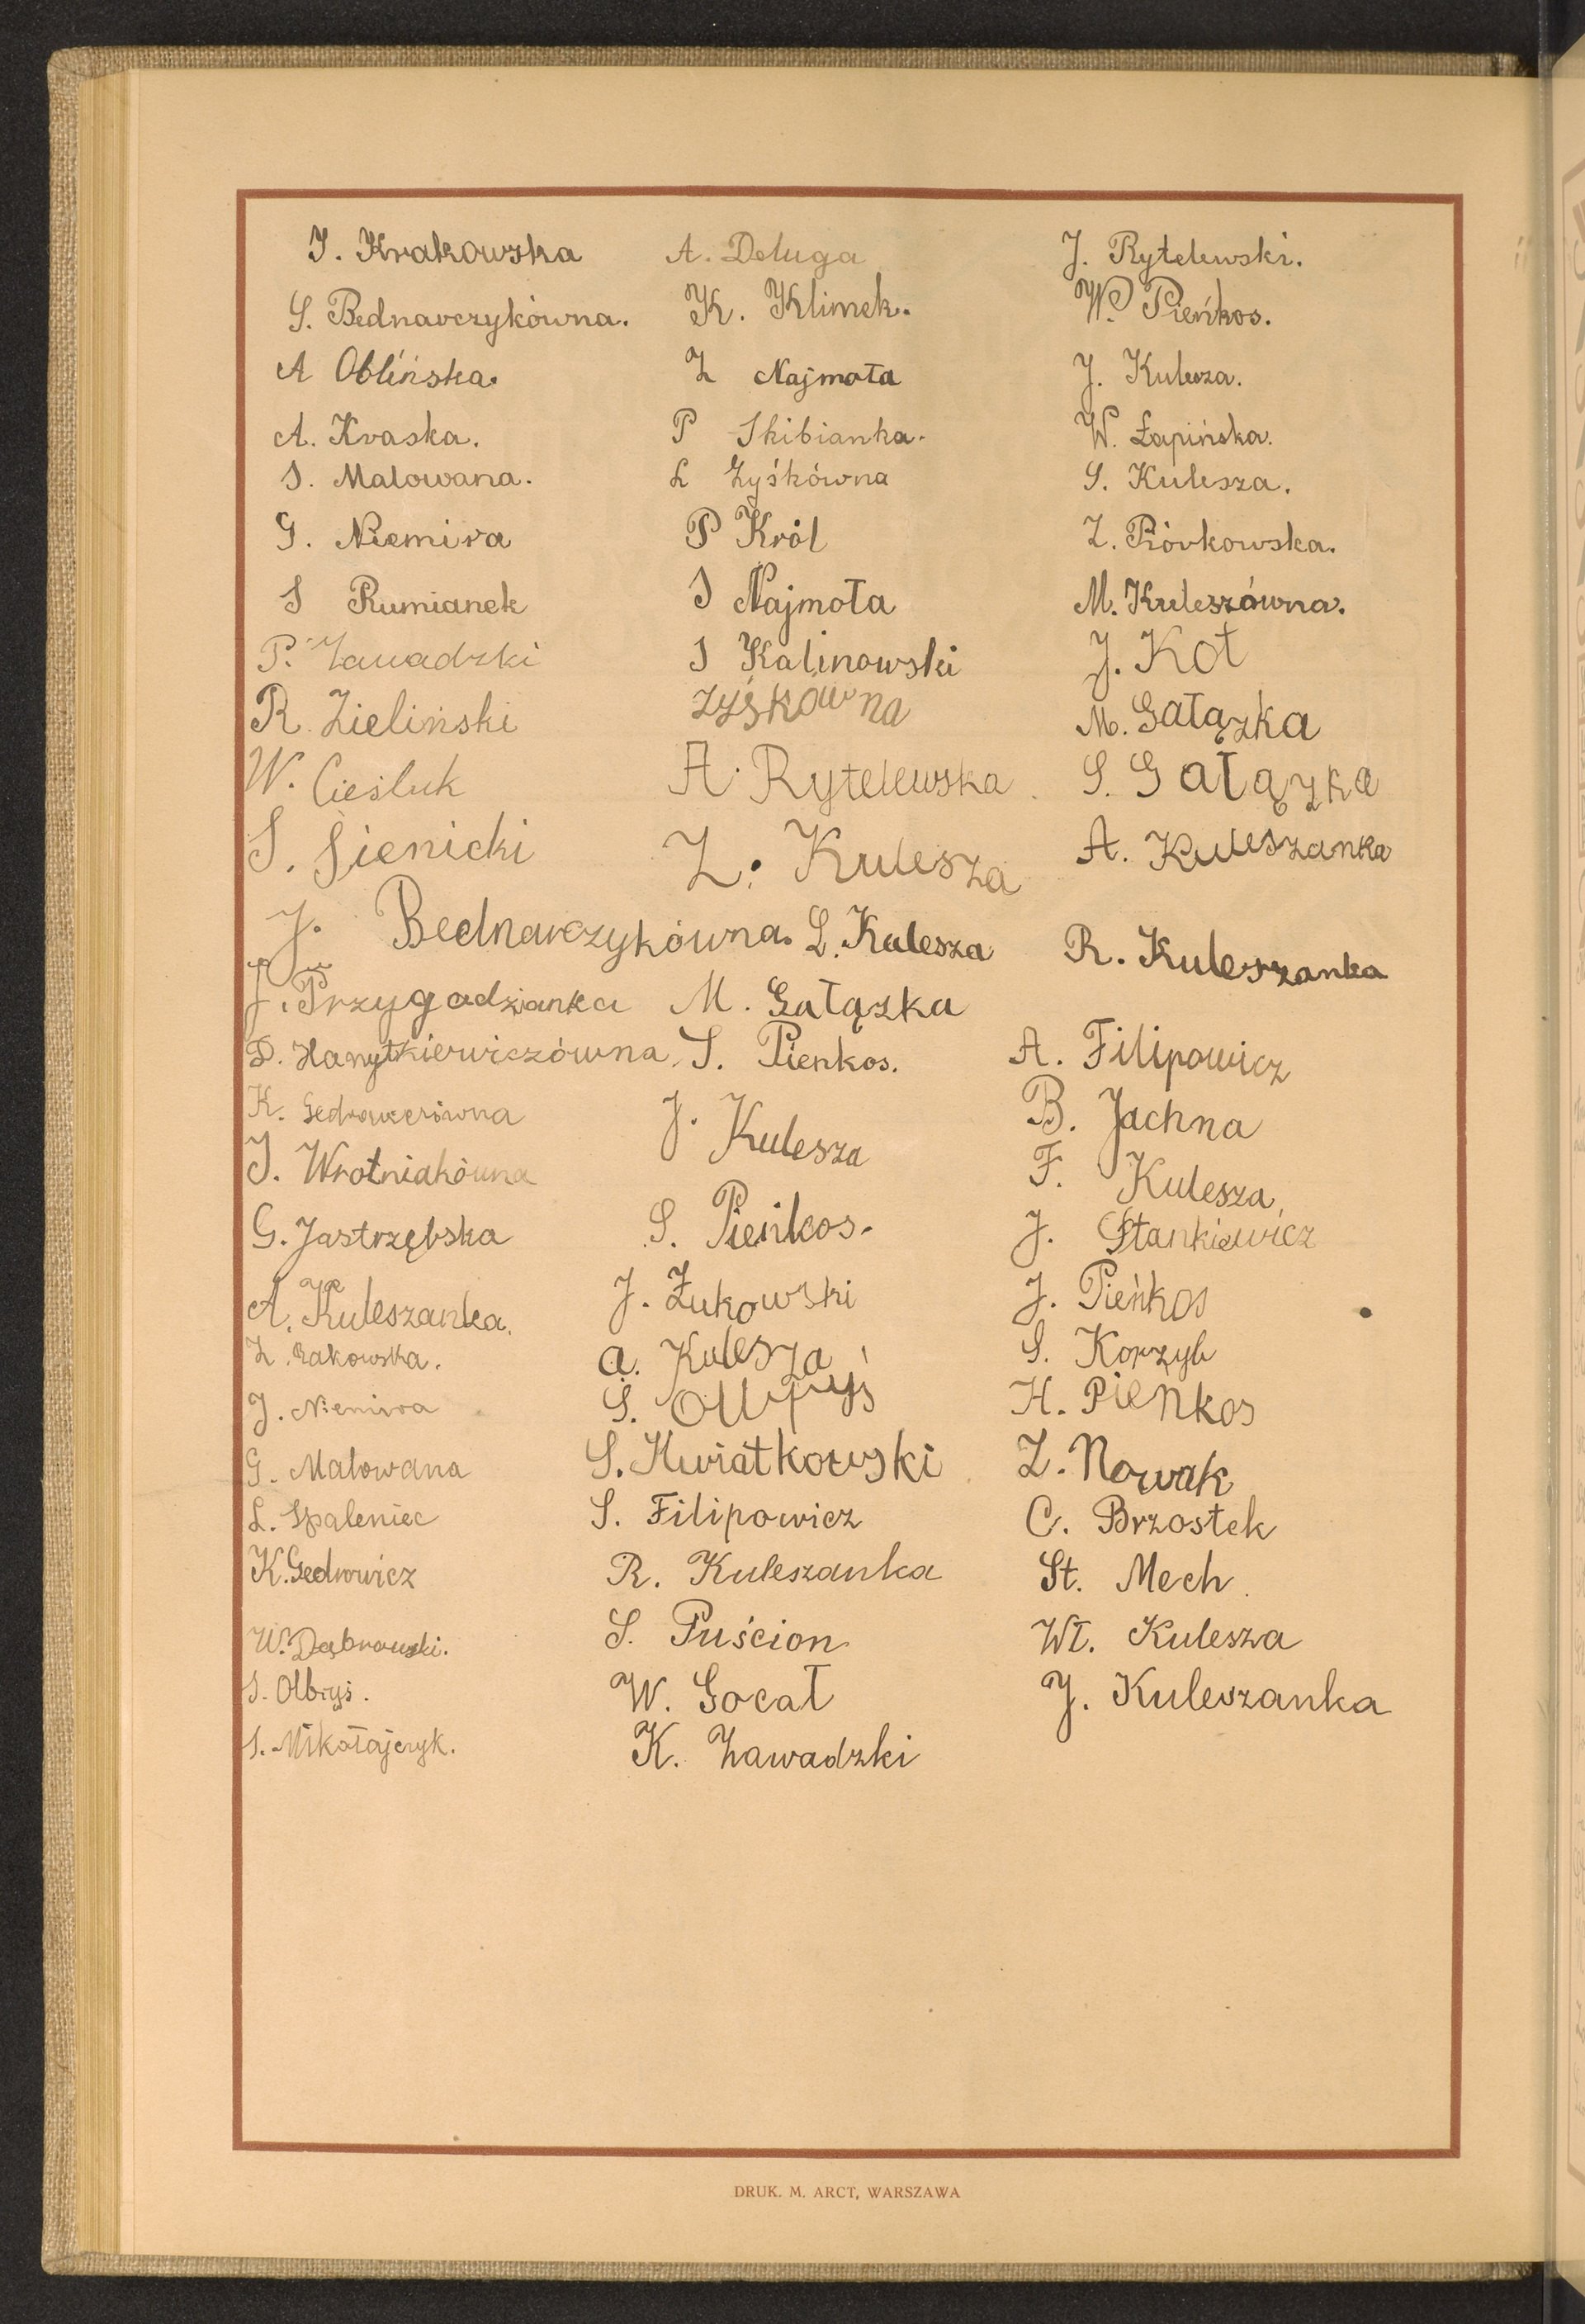 J. Krakowska
S. Bednarczykówna.
A Oblińska.
A. Kraska.
S. Malowana.
G. Niemira
S Rumianek
P. Zawadzki
R. Zieliński
W. Cieśluk
S. Sienicki
J. Bednarczykówna.
J. Przygodzianka
D. Hanytkiewiczówna
K. Gedrowiczówna
J. Wrotniakówna
G. Jastrzębska
A. Kuleszanka.
Z. Rakowska.
J. Niemira
G. Malowana
L. Spaleniec
K. Gedrowicz
W. Dąbrowski.
S. Olbryś.
S. Mikołajczyk.
A. Deluga
K. Klimek.
Z Najmoła
P Skibianka.
L Zyśkówna
P Król
J Najmoła
J Kalinowski
Zyśkówna
A. Rytelewska
Z. Kulesza
L. Kulesza
M. Gałązka
S. Pienkos.
J. Kulesza
S. Pieńkos.
J. Żukowski
A. Kulesza
S.
S. Kwiatkowski
S. Filipowicz
R. Kuleszanka
S. Puścion
W. Gocał
K. Zawadzki
J. Rytelewski.
W. Pieńkos.
J. Kulesza.
W. Łapińska.
S. Kulesza.
Z. Piórkowska.
M. Kuleszówna.
J. Kot
M. Gałązka
S. Gałązka
A. Kuleszanka
R. Kuleszanka
A. Filipowicz
B. Jachna
F. Kulesza
J. Stankiewicz
J. Pieńkos
S. Korzyb
H. Pieńkos
Z. Nowak
C. Brzostek
St. Mech
Wł. Kulesza
J. Kuleszanka
DRUK. M. ARCT, WARSZAWA